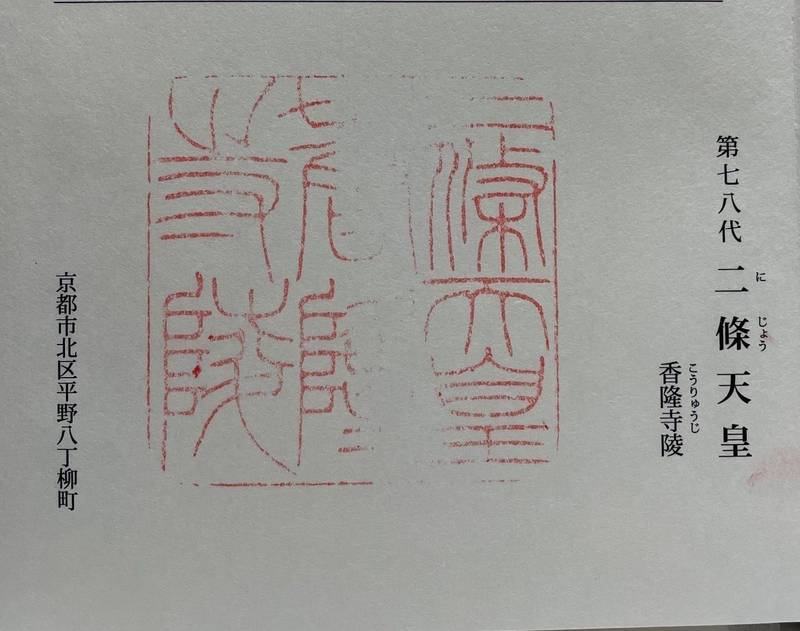 第七八代 二條天皇
に じょう
香隆寺陵
こうりゅうじ
二條天皇
香隆
寺陵
京都市北区平野八丁柳町